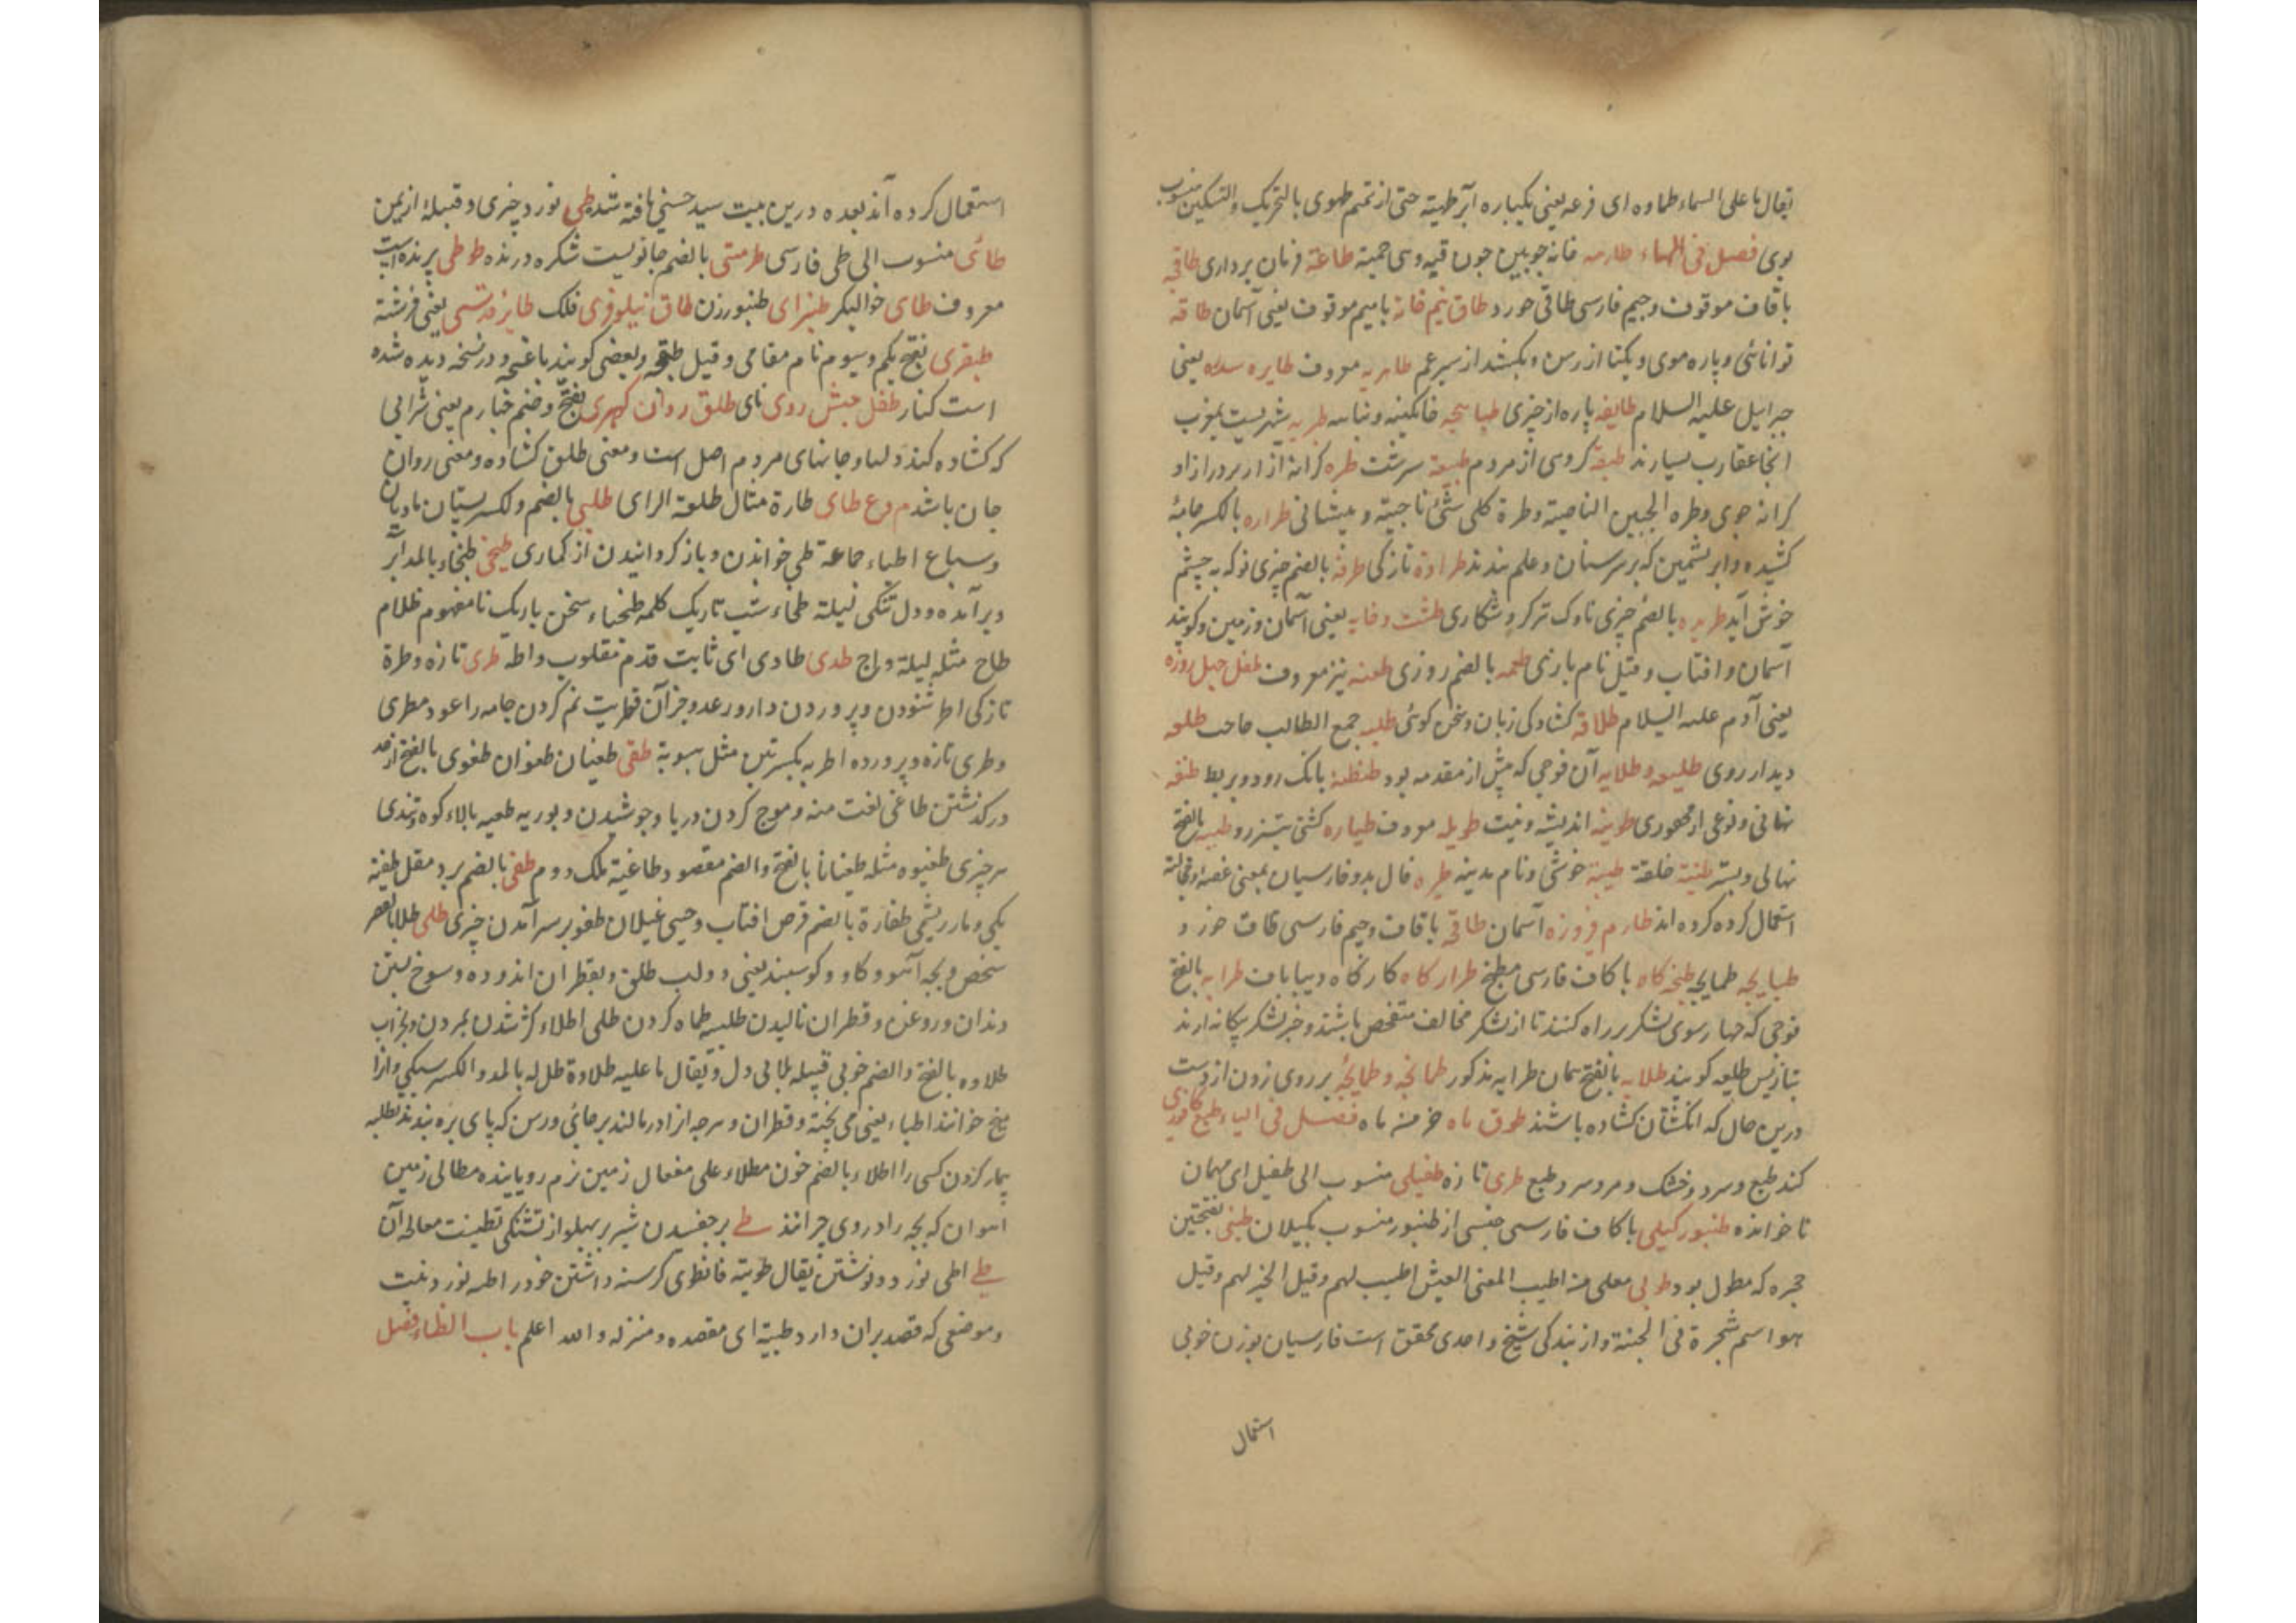 یقال ما علی السماء طماوه ای فرعه یعنی یکباره ابر طهیته حتی از تمیم طهوی بالتحریک والتسکین منسوب
بوی فصل فی الهاء طارمه خانه چوبین چون قبه وسی حمیة طاعة فرمان برداری طاقچه
باقاف موقوف وجیم فارسی طاقی خورد طاق نیم خانه با میم موقوف یعنی آسمان طاقه
توانائی و پاره موی و یکتا از رسن و یکشد از سیرغم طاهریه معروف طایره سدره یعنی
جبرایل علیه السلام طایفه پاره از چیزی طباهجه خاکینه و نباسه طبریه شهریست بمغرب
آنجا عقارب بسیارند طبقه کروهی از مردم طبیعة سرشت طره کرانه ازار بردرازاو
کرانه جوی وطره الجبین الناصیة وطرة کلی شئ ناحیته و پیشانی طراره بالکسر جامهٔ
کشیده وابریشمین که بر سرسنان و علم بندند طراوة تازکی طرفه بالضم چیزی نو که به چشم
خوش آید طریده بالضم چیزی ناوک ترکر و شکاری طشت و خایه یعنی آسمان و زمین وکویند
آسمان وافتاب وقیل نام بازی طعمه بالضم روزی طعنه نیز معروف طفل چهل روزه
یعنی آدم علیه السلام طلاقة کشادکی زبان وسخن کوئی طلبه جمع الطالب صاحب طلعه
دیدار روی طلیعه وطلایه آن فوجی که پیش از مقدمه بود طنطنهٔ بانک رود و بربط طنفه
نهانی ونوعی از محفوری طویه اندیشه ونیت طویله معروف طیاره کشتی تیزرو طیبه بالفتح
نهالی و بستر طینة خلقة طیبة خوشی ونام مدینه طیره فال بد و فارسیان بمعنی غصه و خجالة
استعمال کرده کرده اند طارم فیروزه آسمان طاقچه باقاف وجیم فارسی قاف خورد
طبایجه طمایجه طبخه کاه باکاف فارسی مطبخ طرار کاه کارکاه دیباباف طرایه بالفتح
فوجی که چهار سوی لشکر بر راه کنند تا از لشکر مخالف متفحص باشند وخبر لشکر بیکانه ارند
بتازیس طلیعه کویند طلایه بالفتح همان طرایه مذکور طمانچه وطپانچه بر روی زدن از دست
درین حال که انکشتان کشاده باشند طوق ماه خرمنه ماه فصل فی الیاء طبع کافوری
کند طبع وسرد وخشک ومرو سرد طبع طری تازه طفیلی منسوب الی طفیل ای مهمان
ناخوانده طنبور کیلی باکاف فارسی جنسی از طنبور منسوب بکیلان طنبی بفتحتین
حجره که مطول بود طوبی معلی من اطیب المعنی العیش اطیب لهم وقیل الخیر لهم وقیل
هو اسم شجرة فی الجنة واز بندکی شیخ واحدی محقق است فارسیان بوزن خوبی
استعمال
استعمال کرده اند بعده درین بیت سید حسنی یافته شد طی نورد چیزی و قبیلهٔ از یمن
طائی منسوب الی طی فارسی طرمتی بالضم جانوریست شکره درنده طوطی پرنده است
معروف طای خوالیکر طنبزای طنبورزن طاق نیلوفری فلک طایر قدسی یعنی فرشته
طبقری بفتح یکم وسیوم نام مقامی وقیل طبقچه وبعضی کویند باغچه و در نسخه دیده شده
است کنار طفل حبش روی نای طلق روان کهری بفتح وضم خبارم یعنی شرابی
که کشاده کند دلها وجانهای مردم اصل است ومعنی طلق کشاده ومعنی روان
جان باشد م وع طای طارة مثال طلعة الرای طلبی بالضم ولکسر پستان مادیان
وسباع اطباء جماعة طی خواندن وباز کردانیدن از کماری طیخی طنخاء بالمد ابر
وبرآمده و دل تنکی لیلة طخاء شب تاریک کلمه طخیاء سخن باریک نامفهوم ظلام
طاح مثله لیلة وراج طدی طادی ای ثابت قدم مقلوب واطه طری تازه وطرة
تازکی اطر شنودن وپروردن دارو رعد و جز آن قطریت نم کردن جامه را عود مطری
وطری تازه و پرورده اطریه بکسرتین مثل سبوبة طقی طغیان طغوان طغوی بالفتح از حد
درکذشتن طاغی لغت منه و موج کردن دریا وجوشیدن وبوریه طغیه بالاء کوه وتندی
سر چیزی طغیوه مثله طغیانا بالفتح والضم مقصود طاغیة ملک روم طفی بالضم برد مقل طفیة
یکی ومار ریشمی طفارة بالضم قرص افتاب وحیی غیلان طفو بر سر آمدن چیزی طلی طلا بالقصر
شخص وبچه آهو وکاو وکوسبند یعنی دولب طلق وبقطران اندوده وسوخ بستن
دندان وروغن وقطران مالیدن طلبیه طماه کردن طلی اطلاء کژ شدن بمردن وبخواب
طلاوه بالفتح والضم خوبی قبیله طابی دل ویقال ما علیه طلاوة طل له بالمد والکسر سیکی وانرا
میخ خوانند اطباء یعنی می پخته وقطران وهرچه انرا درمالند برجائی ورسن که پای بره بندند تطلیه
بیمار کردن کسی را اطلاء بالضم خون مطلاء علی مفعال زمین نرم رویاینده مطالی زمین
اهوان که بچه را دروی چرانند طے برجفسدن شیر بر پهلو از تشنکی تطنیت معالجه آن
طے اطی نورد و نوشتن یقال طویته فانطوی کرسنه داشتن خود را طیه نورد ونیت
وموضعی که قصد بران دارد طیبة ای مقصده ومنزله والله اعلم باب الظاء فصل